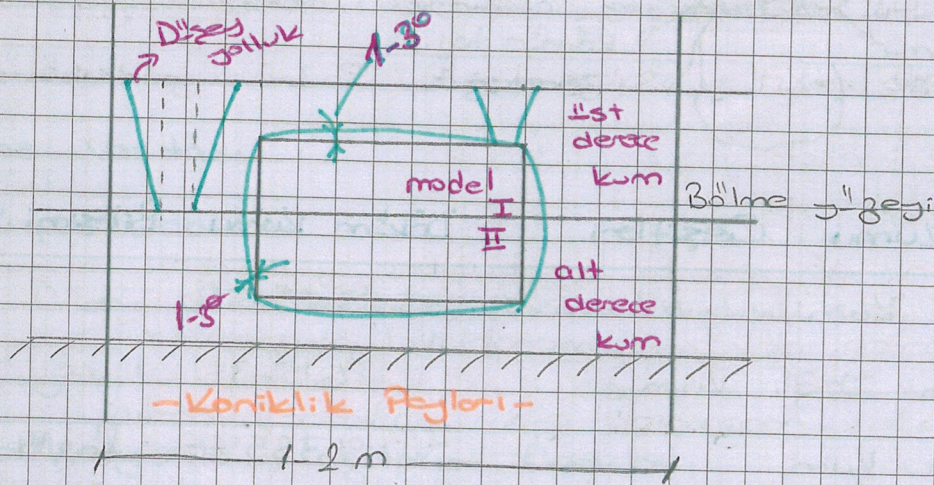 Düşey
yolluk
1-3°
üst
derece
kum
model
I
II
Bölme yüzeyi
alt
derece
kum
1-3°
-Koniklik Payları-
1-2 m